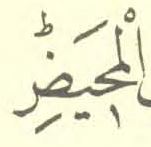 الْمَحِيضِؕ